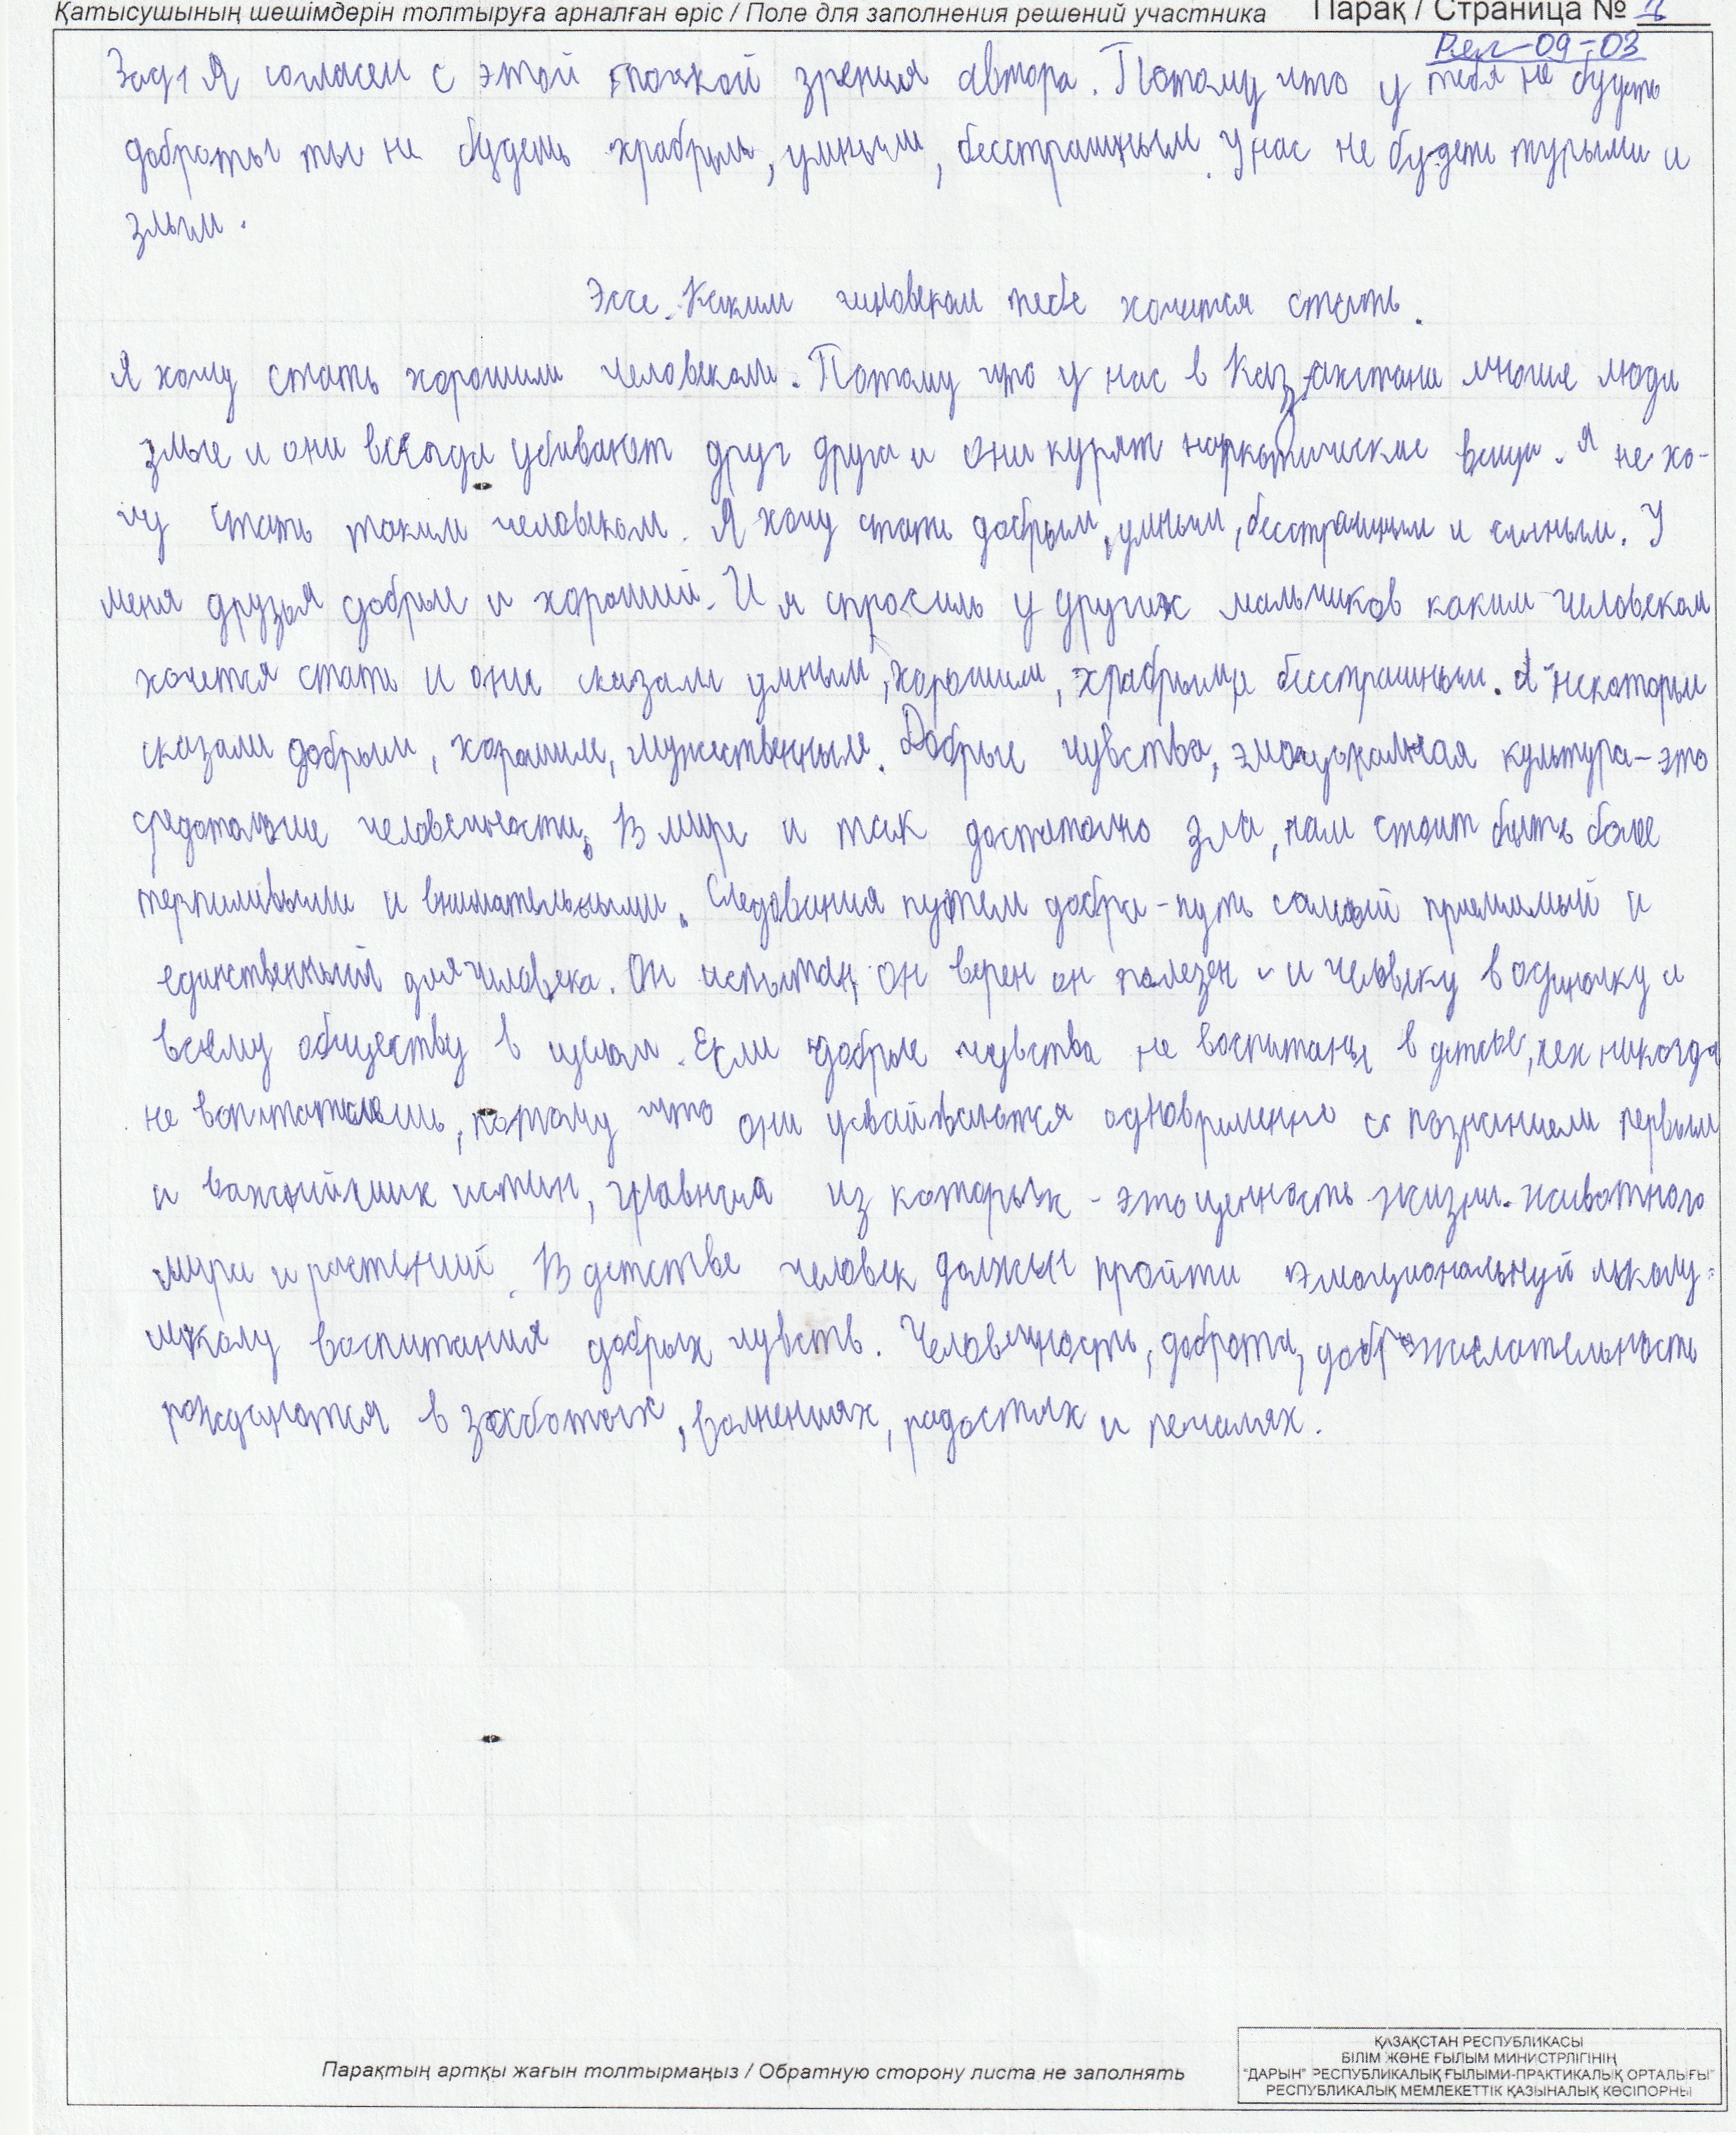 Қатысушының шешімдерін толтыруға арналған өріс / Поле для заполнения решений участника Парақ / Страница № 1
09-03
Зад1 Я согласен с этой точкой зрения автора. Потому что у тебя не будуть
доброты ты не будешь храбрым, умным, бесстрашным. У нас не будет и
злым.
Эссе. Каким человеком тебе хочится стать.
Я хочу стать хорошим человеком. Потому что у нас в Казахстане многие люди
злые и они всегда убивают друг друга и они курят наркотические вещи. Я не хо-
чу стать таким человеком. Я хочу стать добрым, умным, бесстрашным и сильным. У
меня друзья добрые и хороший. И я спросиль у других мальчиков каким человеком
хочется стать и они сказали умным, хорошим, храбрым и бесстрашным. А некоторые
сказали добрым, хорошим, мужественным. Добрые чувства, эмоциональная культура - это
средоточие человечности. В мире и так достаточно зла, нам стоит быть более
терпиливыми и внимательными. Следования путем добра - путь самый приемлимый и
единственный для человека. Он испытан, он верен он полезен - и человеку в одиночку и
всему обществу в целом. Если добрые чувства не воспитаны в детстве, их никогда
не воспитаешь, потому что они усвайваются одновременно с познанием первым
и важнейших истин, главная из которых - это ценность жизни. животного
мира и растений. В детстве человек должен пройти эмоциональнуй школу -
школу воспитания добрых чувств. Человечность, доброта, доброжелательность
рождаются в заботах, волнениях, радостях и печалях.
Парақтың артқы жағын толтырмаңыз / Обратную сторону листа не заполнять
ҚАЗАҚСТАН РЕСПУБЛИКАСЫ
БІЛІМ ЖӘНЕ ҒЫЛЫМ МИНИСТРЛІГІНІҢ
"ДАРЫН" РЕСПУБЛИКАЛЫҚ ҒЫЛЫМИ-ПРАКТИКАЛЫҚ ОРТАЛЫҒЫ"
РЕСПУБЛИКАЛЫҚ МЕМЛЕКЕТТІК ҚАЗЫНАЛЫҚ КӘСІПОРНЫ